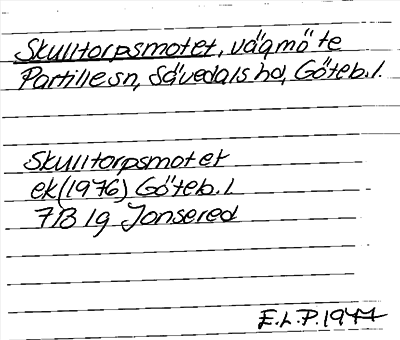 Skulltorpsmotet, vägmöte
Partille sn, Sävedals hd, Göteb. l.
Skulltorpsmotet
ek (1976) Göteb. l
7B 1g Jonsered
E.L.P. 1977